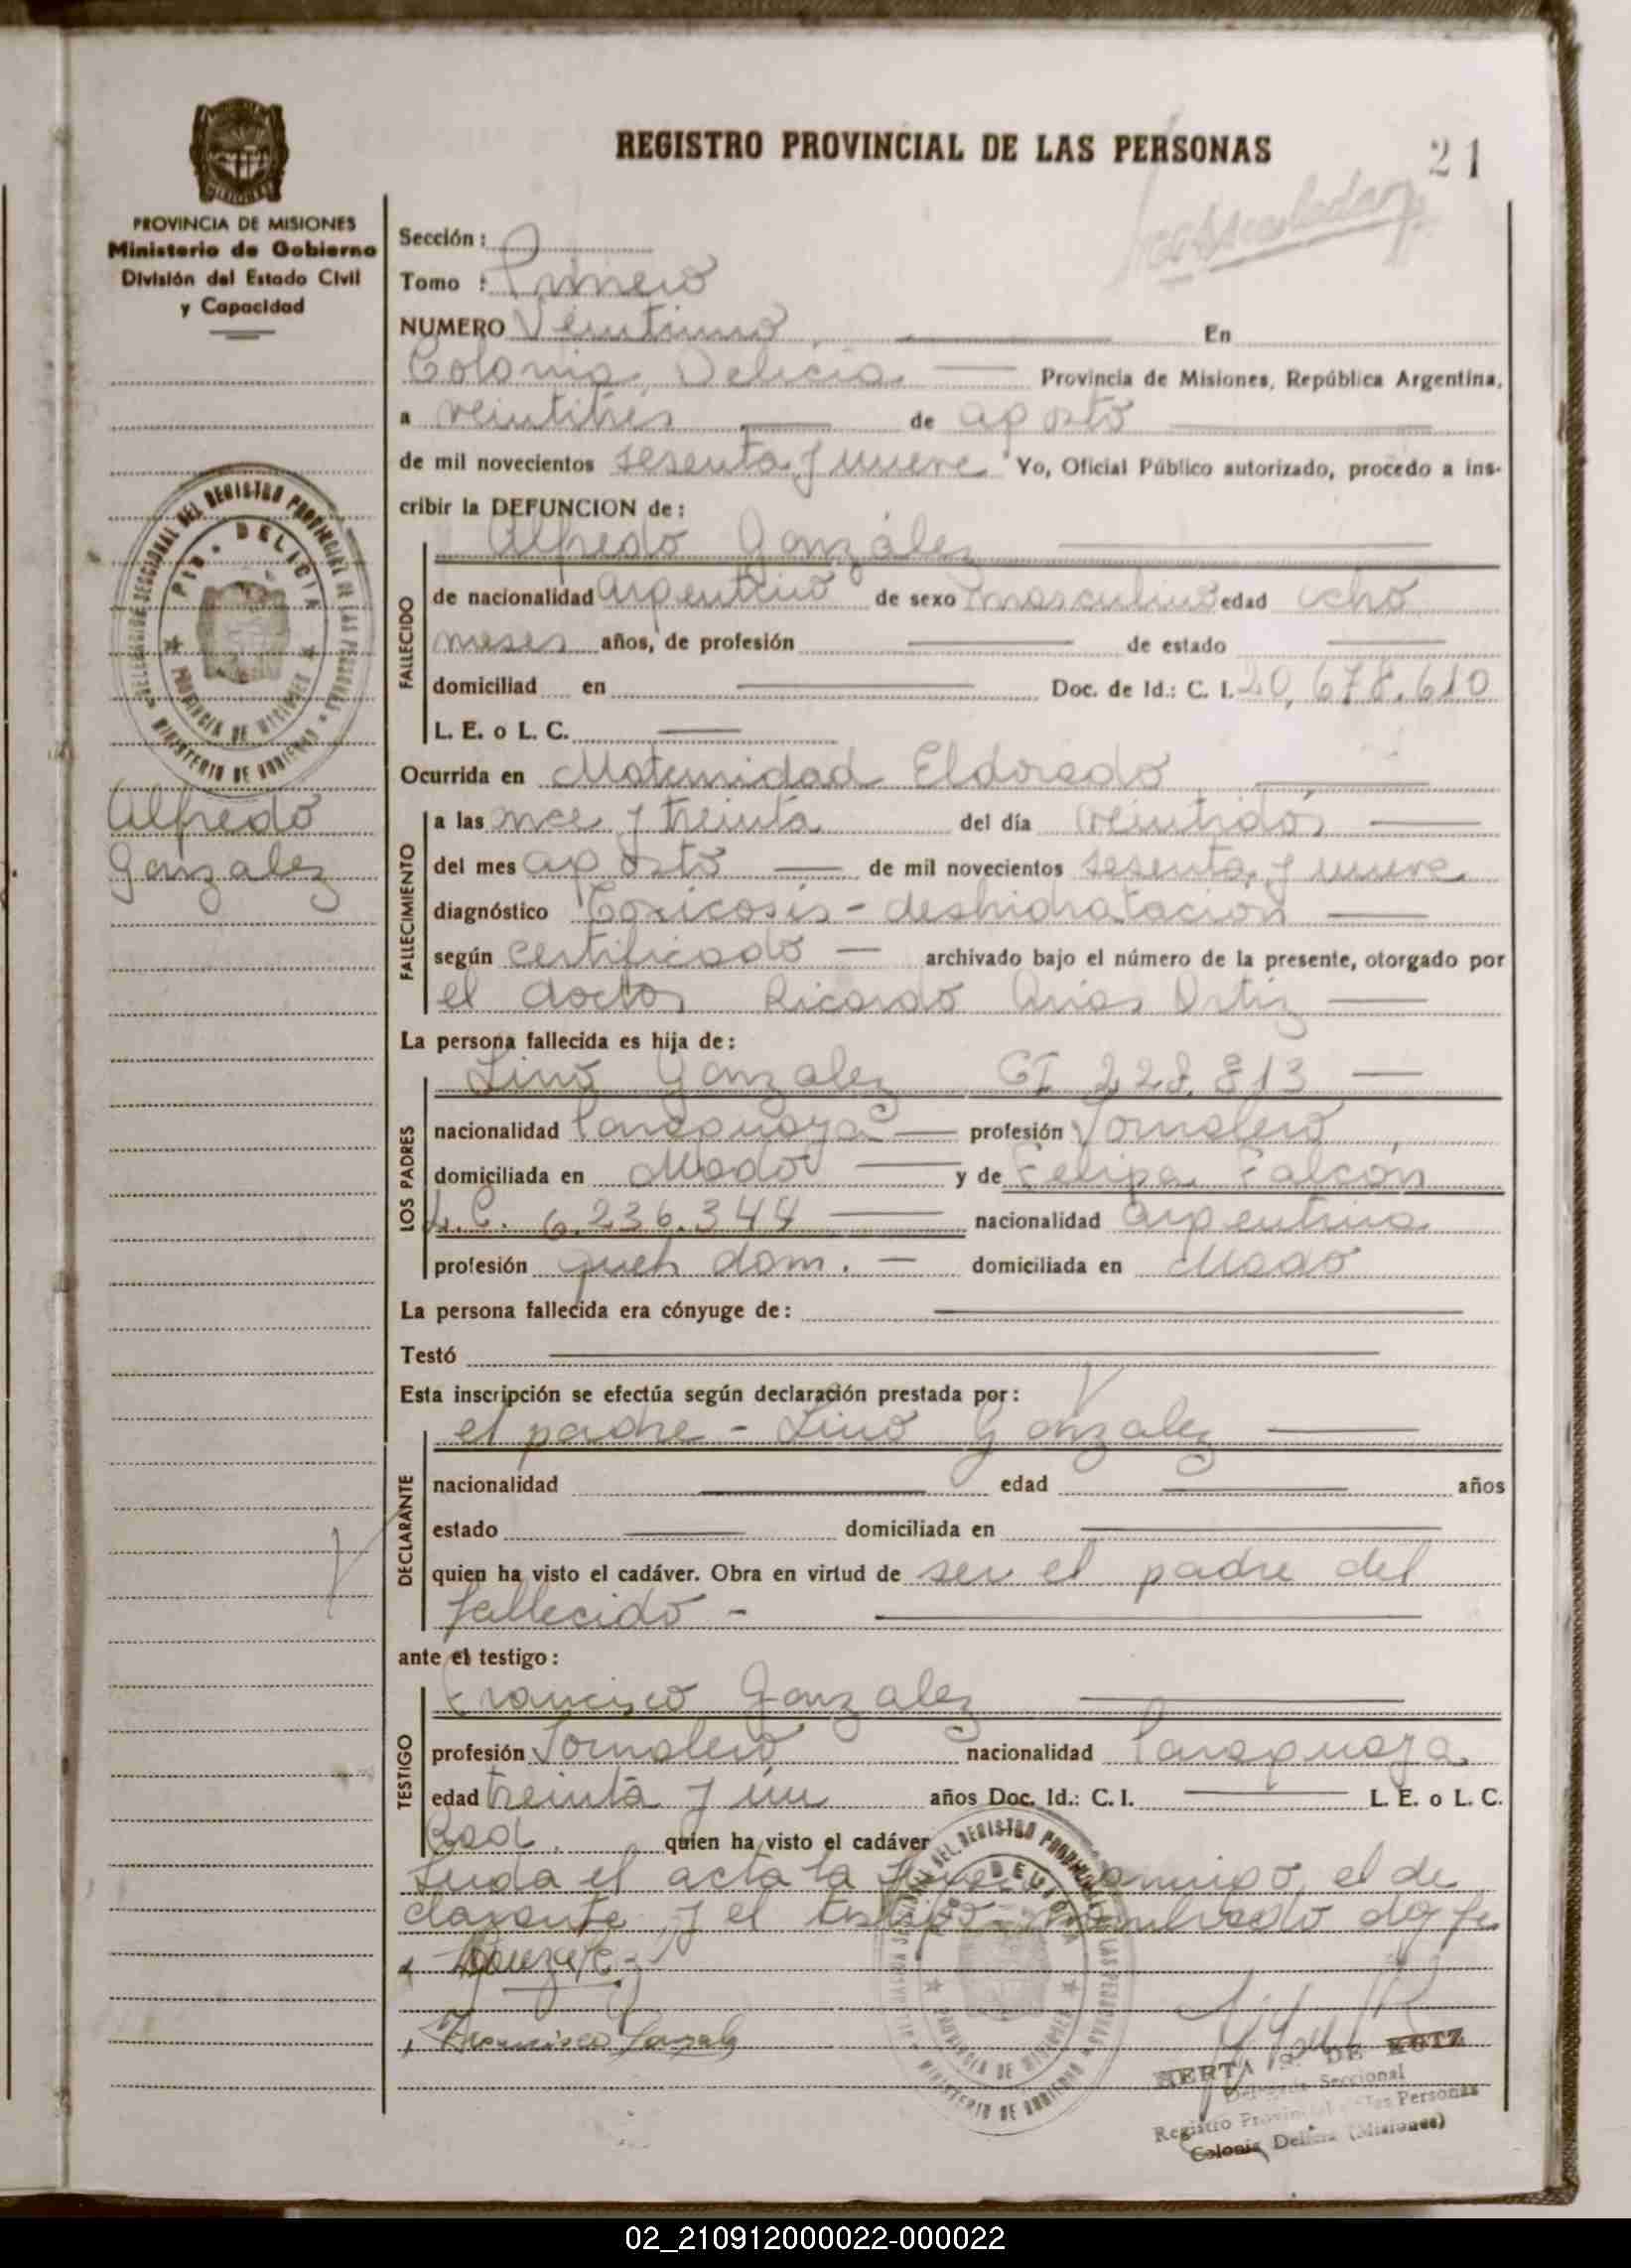 REGISTRO PROVINCIAL DE LAS PERSONAS
21
PROVINCIA DE MISIONES
Ministerio de Gobierno
División del Estado Civil
y Capacidad
Sección :
Tomo : Primero
NUMERO Veintiuno En
Colonia Delicia Provincia de Misiones, República Argentina,
a veintitrés de agosto
de mil novecientos sesenta y nueve Yo, Oficial Público autorizado, procedo a ins-
cribir la DEFUNCION de :
FALLECIDO
Alfredo González
de nacionalidad argentino de sexo masculino edad ocho
meses años, de profesión de estado
domiciliad en Doc. de Id.: C. I. 20,678.610
L. E. o L. C.
Ocurrida en Maternidad Eldorado
Alfredo
Gonzalez
FALLECIMIENTO
a las once y treinta del día veintidós
del mes agosto de mil novecientos sesenta y nueve
diagnóstico Toxicosis - deshidratación
según certificado archivado bajo el número de la presente, otorgado por
el doctor Ricardo Arias Ortiz
La persona fallecida es hija de :
LOS PADRES
Lino Gonzalez CI 228.813
nacionalidad Paraguaya profesión Jornalero
domiciliada en Mado y de Felipa Falcón
L.C. 6.236.344 nacionalidad argentina
profesión queh dom. domiciliada en Mado
La persona fallecida era cónyuge de :
Testó
Esta inscripción se efectúa según declaración prestada por :
DECLARANTE
el padre - Lino Gonzalez
nacionalidad edad años
estado domiciliada en
quien ha visto el cadáver. Obra en virtud de ser el padre del
fallecido -
ante el testigo :
TESTIGO
Francisco Gonzalez
profesión Jornalero nacionalidad Paraguaya
edad treinta y un años Doc. Id.: C. I. L. E. o L. C.
quien ha visto el cadáver
el acta la conmigo, el de
clarante y el testigo nombrado doy fe
Francisco Gonzalez
DELEGACION SECCIONAL DEL REGISTRO PROVINCIAL DE LAS PERSONAS
MINISTERIO DE GOBIERNO
DELICIA
PROVINCIA DE MISIONES
HERTA S. DE
Seccional
Registro Provincial de las Personas
Colonia Delicia (Misiones)
02_210912000022-000022